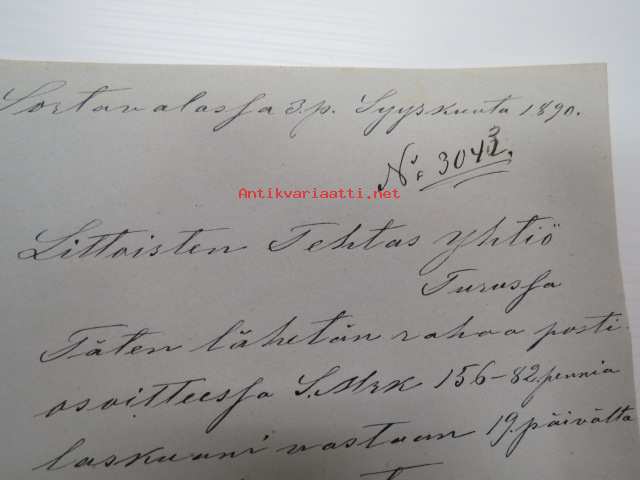 Sortavalassa 3.p. Syyskuuta 1890.
No: 3043.
Antikvariaatti.net
Littoisten Tehtas yhtiö
Turussa
Täten lähetän rahaa posti-
osoitteessa S.Mrk 156-82.penniä
laskuani vastaan 19. päivältä